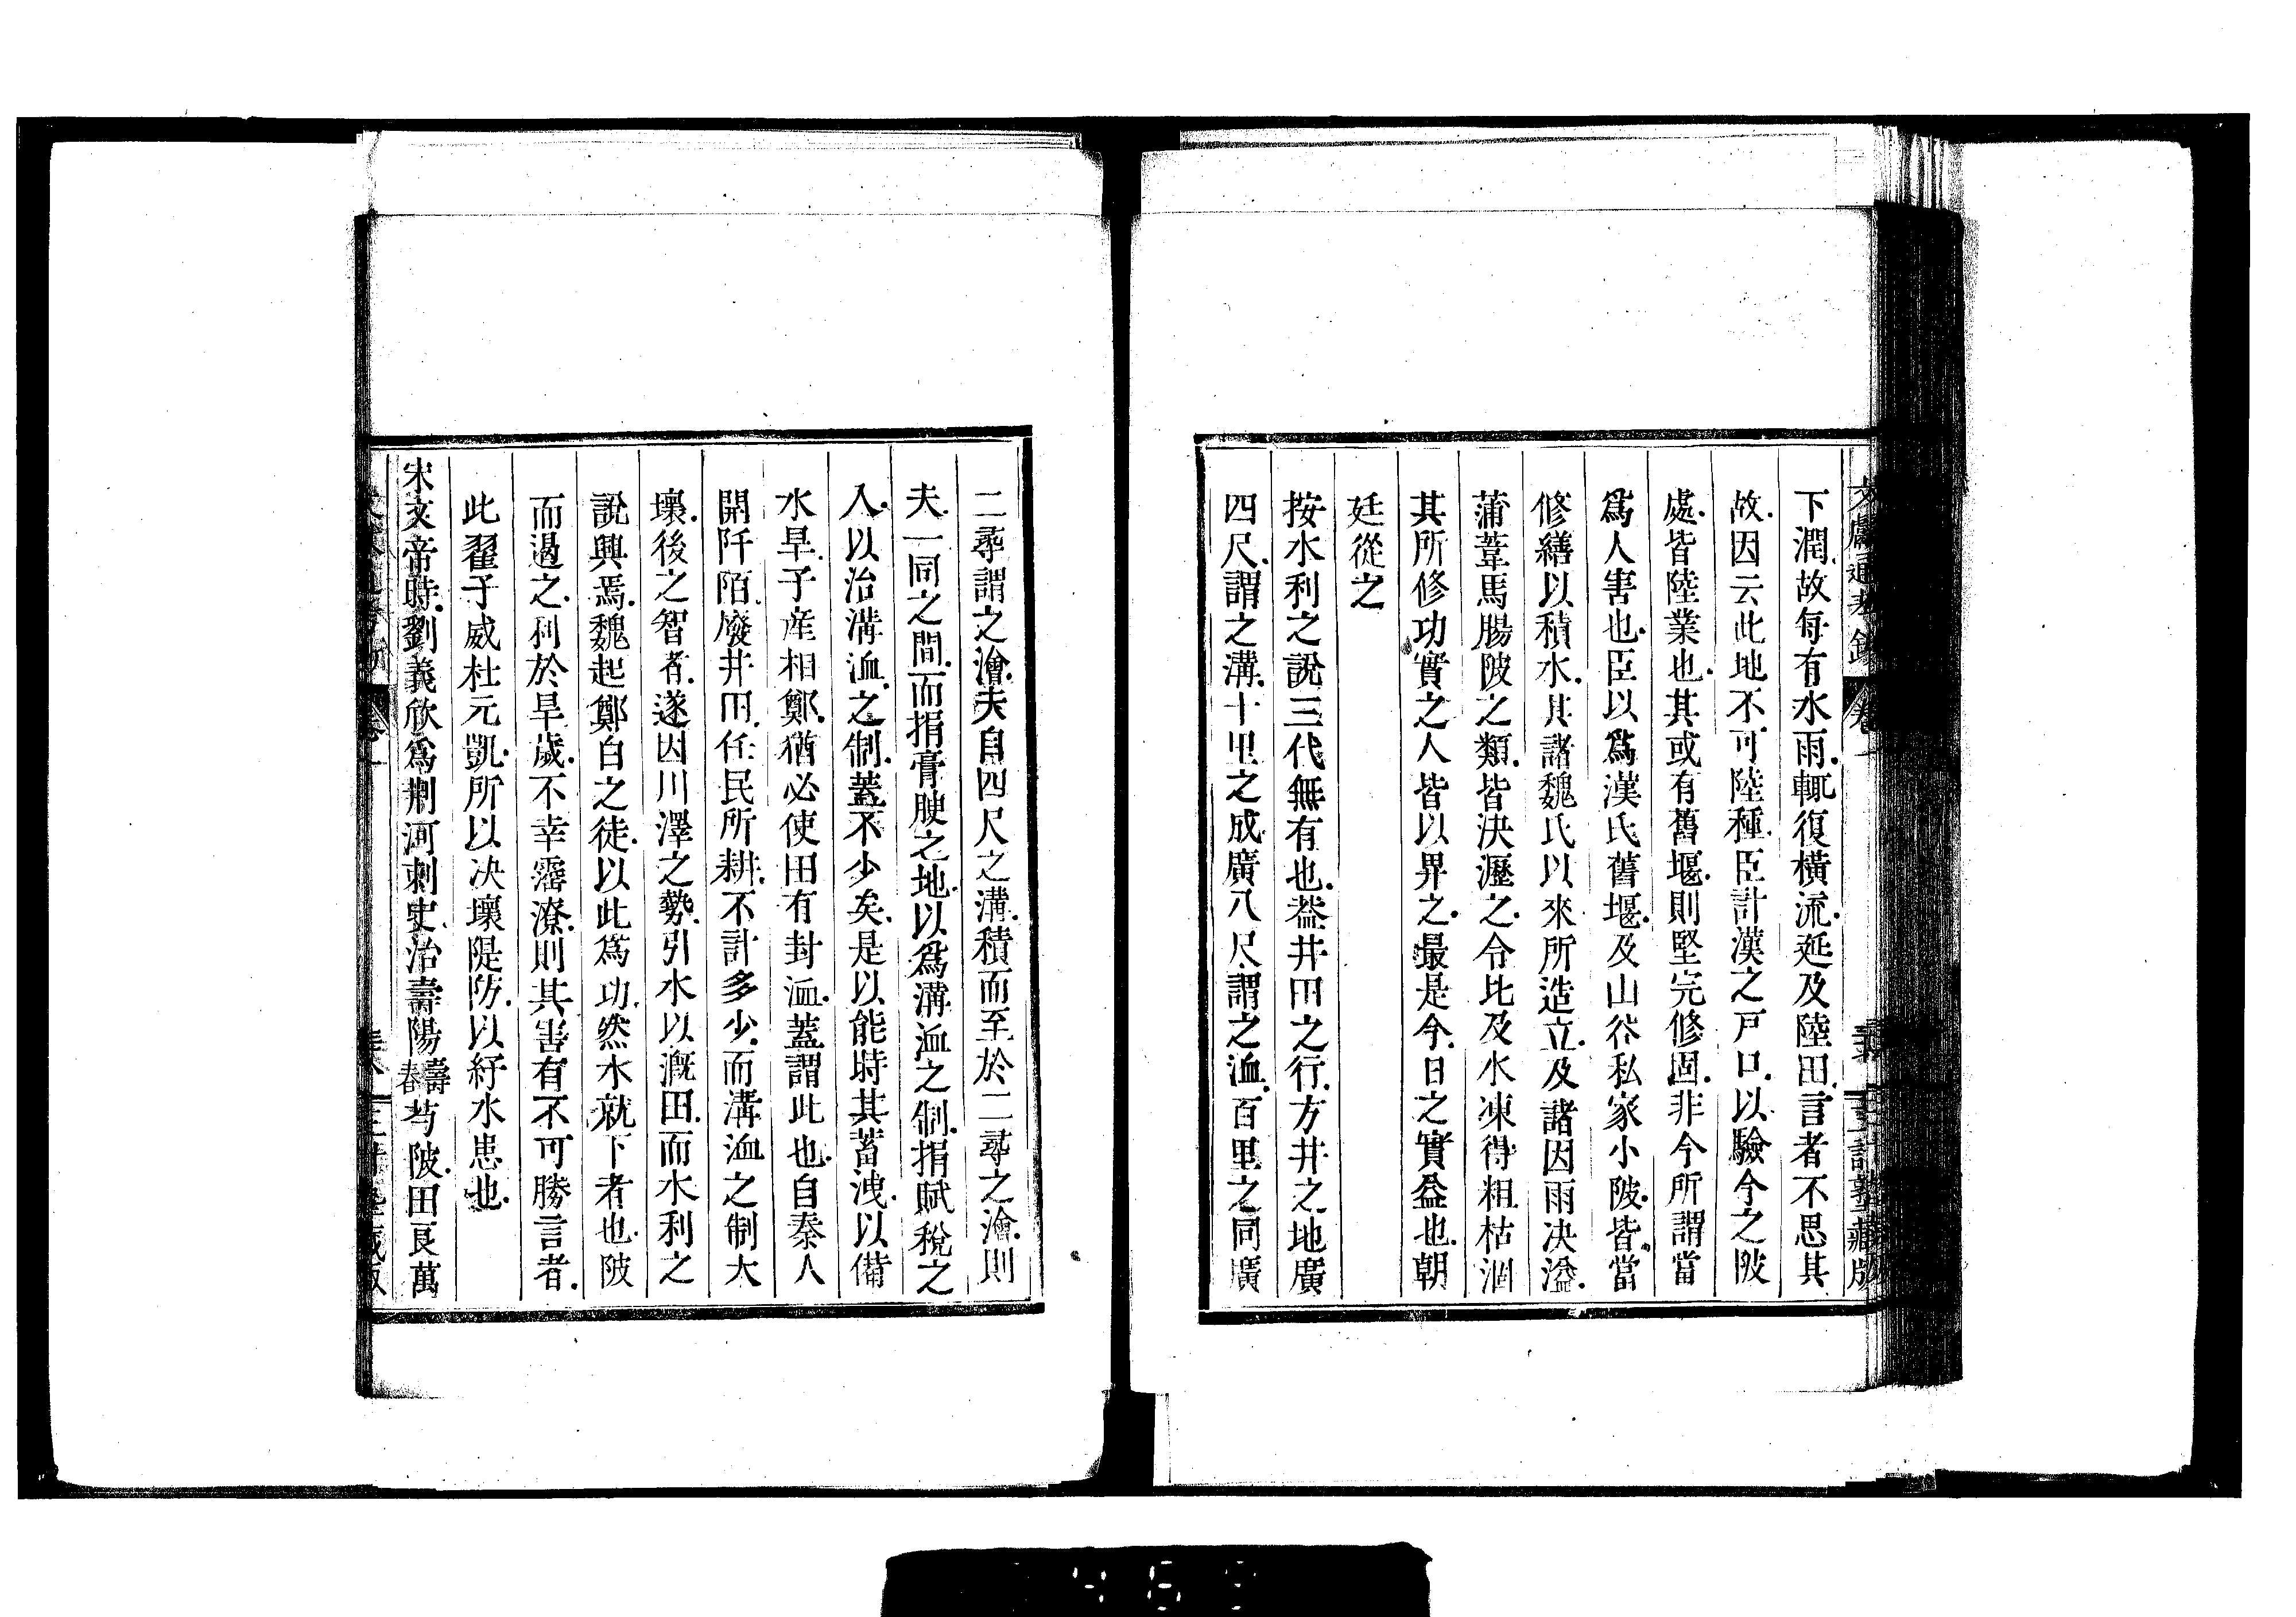 下潤故每有水雨輒復橫流延及陸田言者不思其
故因云此地不可陸種臣計漢之戸口以驗今之陂
處皆陸業也其或有舊堰則堅完修固非今所謂當
爲人害也臣以爲漢氏舊堰及山谷私家小陂皆當
修繕以積水其諸魏氏以來所造立及諸因雨决溢
蒲葦馬腸陂之類皆決瀝之令比及水凍得粗枯涸
其所修功實之人皆以畀之最是今日之實益也朝
廷從之
按水利之說三代無有也葢井田之行方井之地廣
四尺謂之溝十里之成廣八尺謂之洫百里之同廣
二尋謂之澮夫自四尺之溝積而至於二尋之澮則
夫一同之間而捐膏腴之地以爲溝洫之制捐賦稅之
入以治溝洫之制蓋不少矣是以能時其蓄洩以備
水旱子産相鄭猶必使田有封洫蓋謂此也自秦人
開阡陌廢井田任民所耕不計多少而溝洫之制大
壞後之智者遂因川澤之勢引水以溉田而水利之
說興焉魏起鄭白之徒以此爲功然水就下者也陂
而遏之利於旱歲不幸霪潦則其害有不可勝言者
此翟子威杜元凱所以決壞隄防以紓水患也
宋文帝時劉義欣爲荆河刺史治壽陽壽春芍陂田良萬